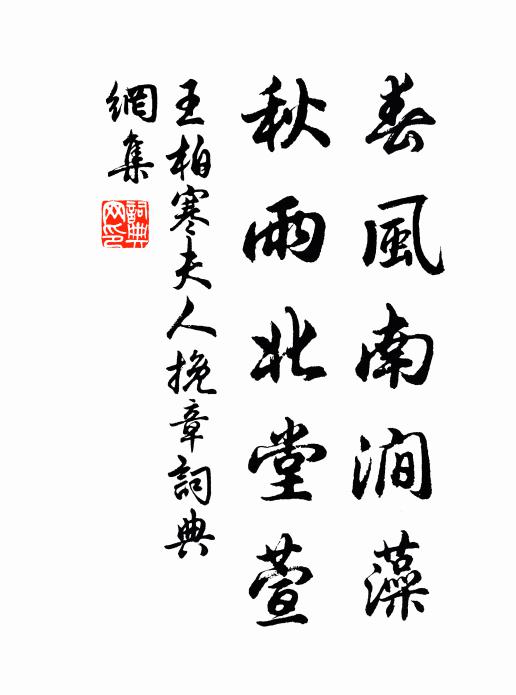 春風南澗藻
秋雨北堂萱
王柏寒夫人挽章詞典
網集
詞典網印